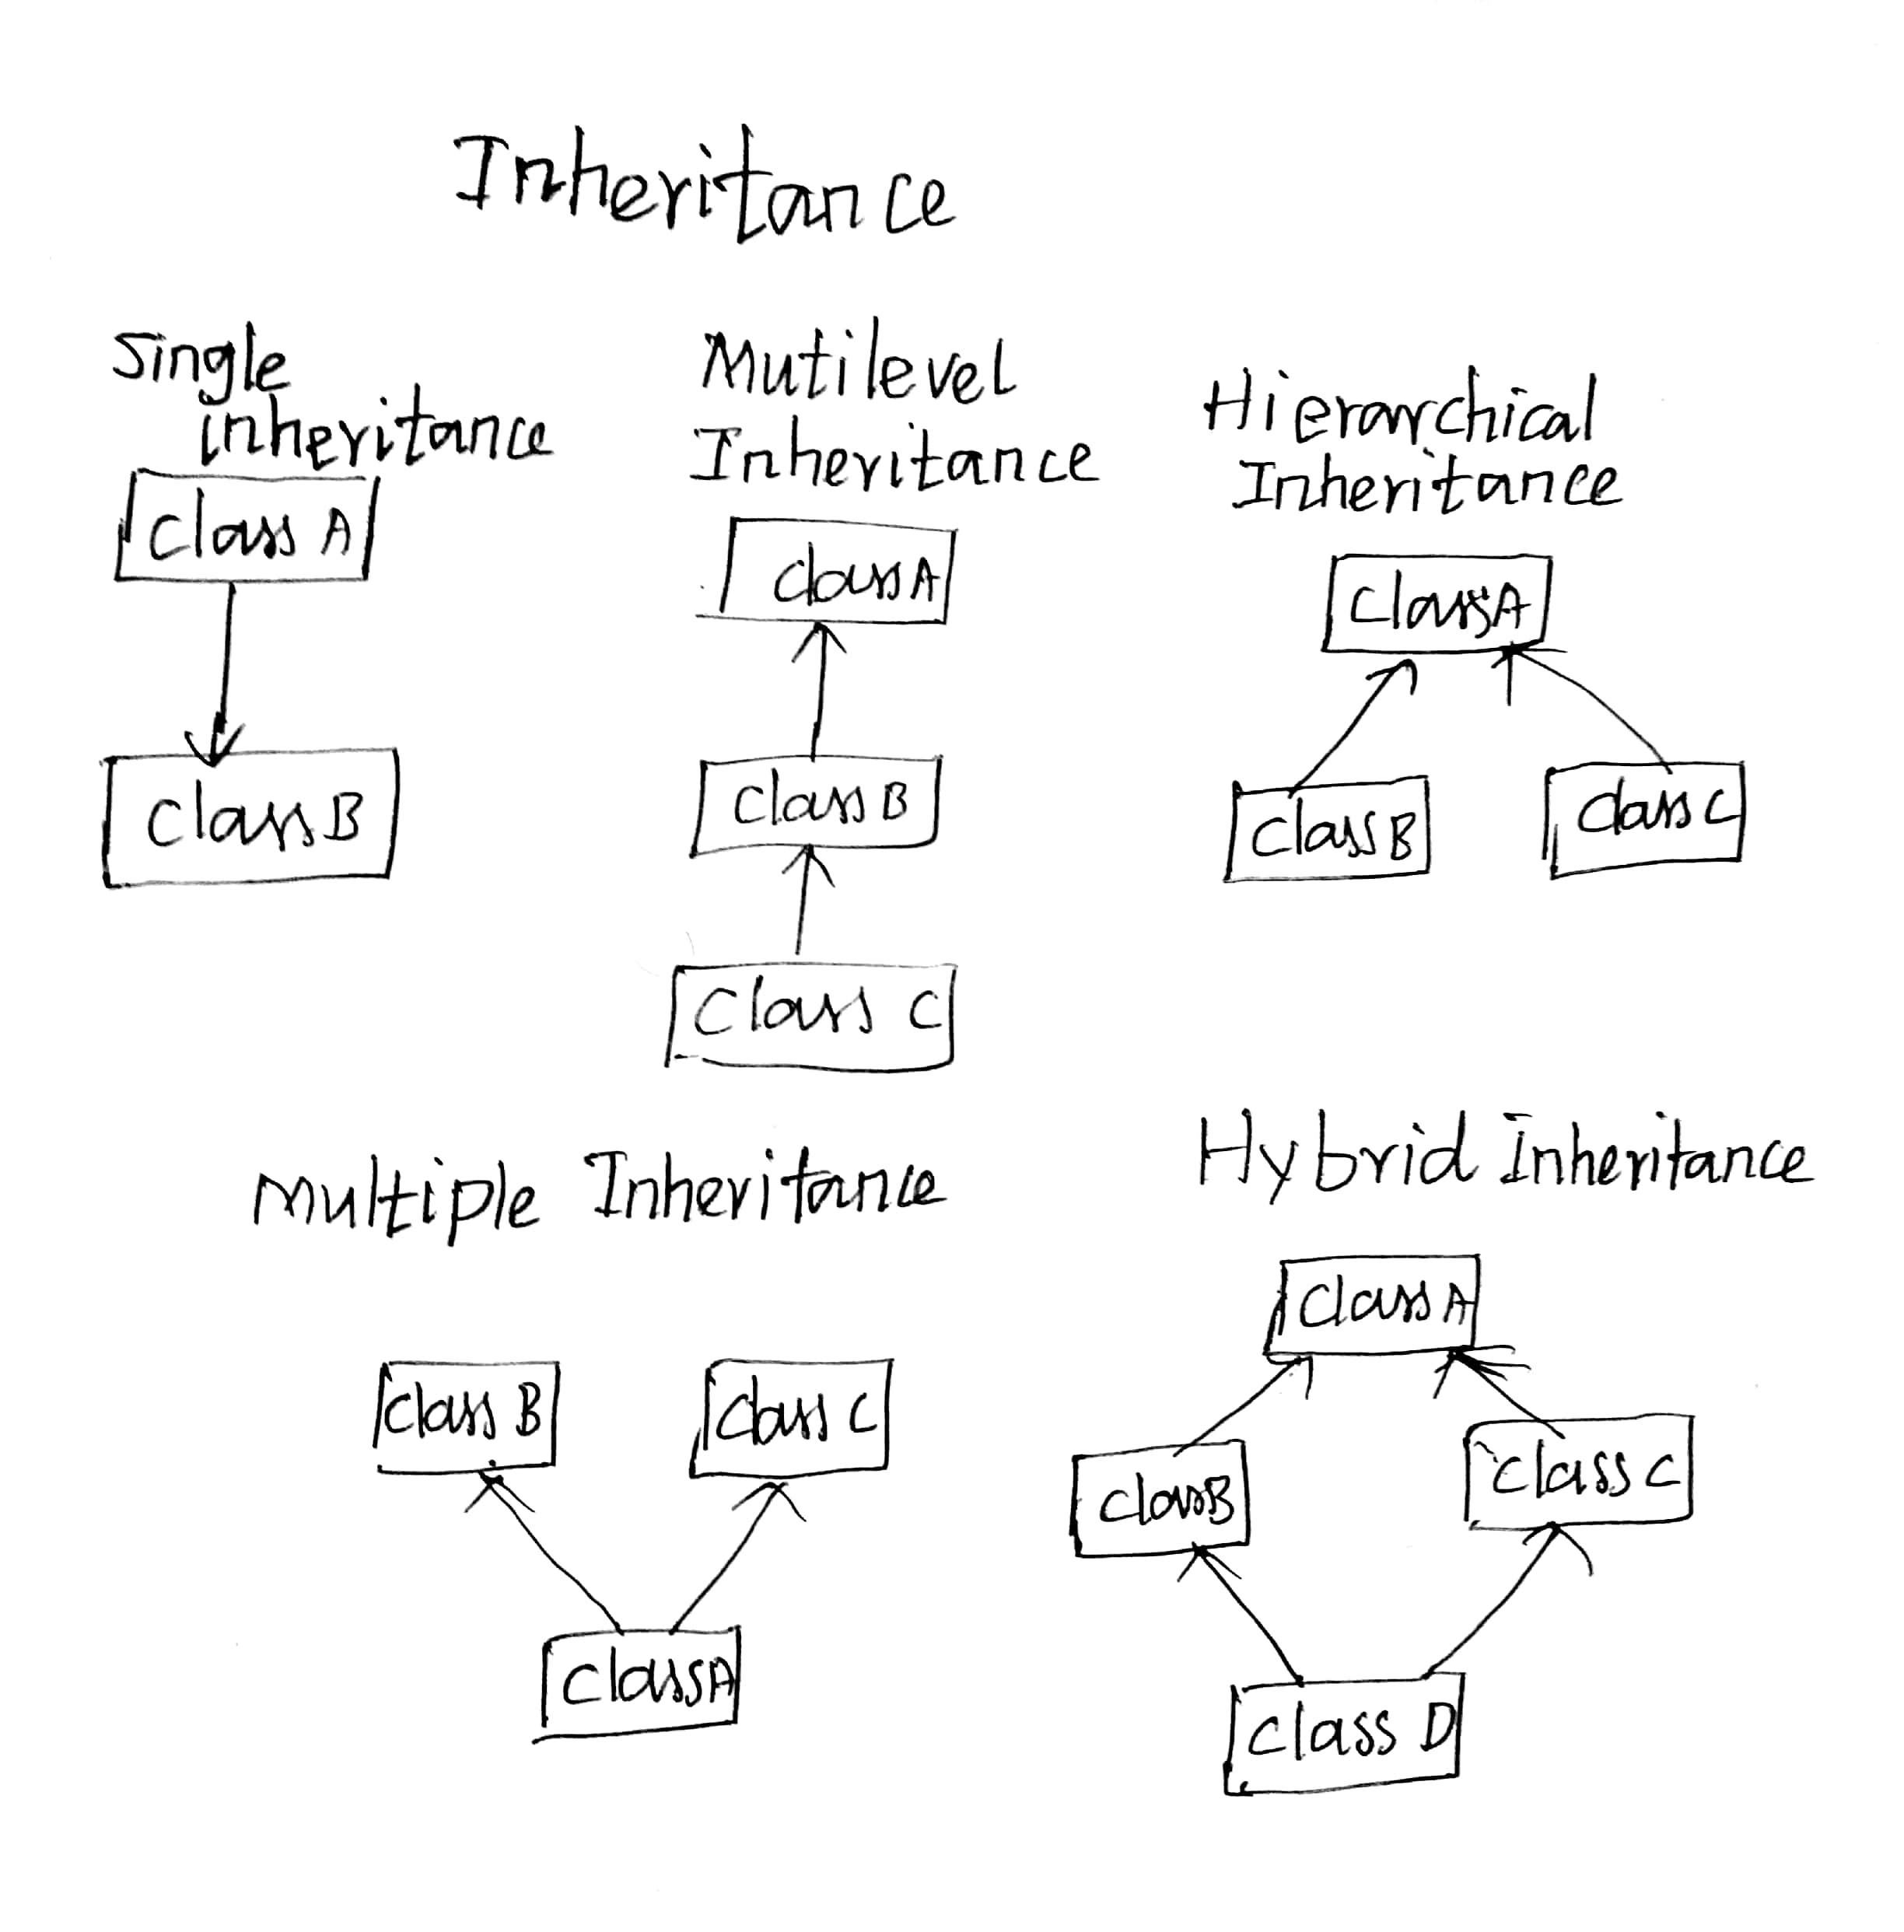 Inheritance
Single
inheritance
Class A
Class B
Mutilevel
Inheritance
Class A
Class B
Class C
Hierarchical
Inheritance
Class A
Class B
Class C
Multiple Inheritance
Class B
Class C
Class A
Hybrid Inheritance
Class A
Class B
Class C
Class D